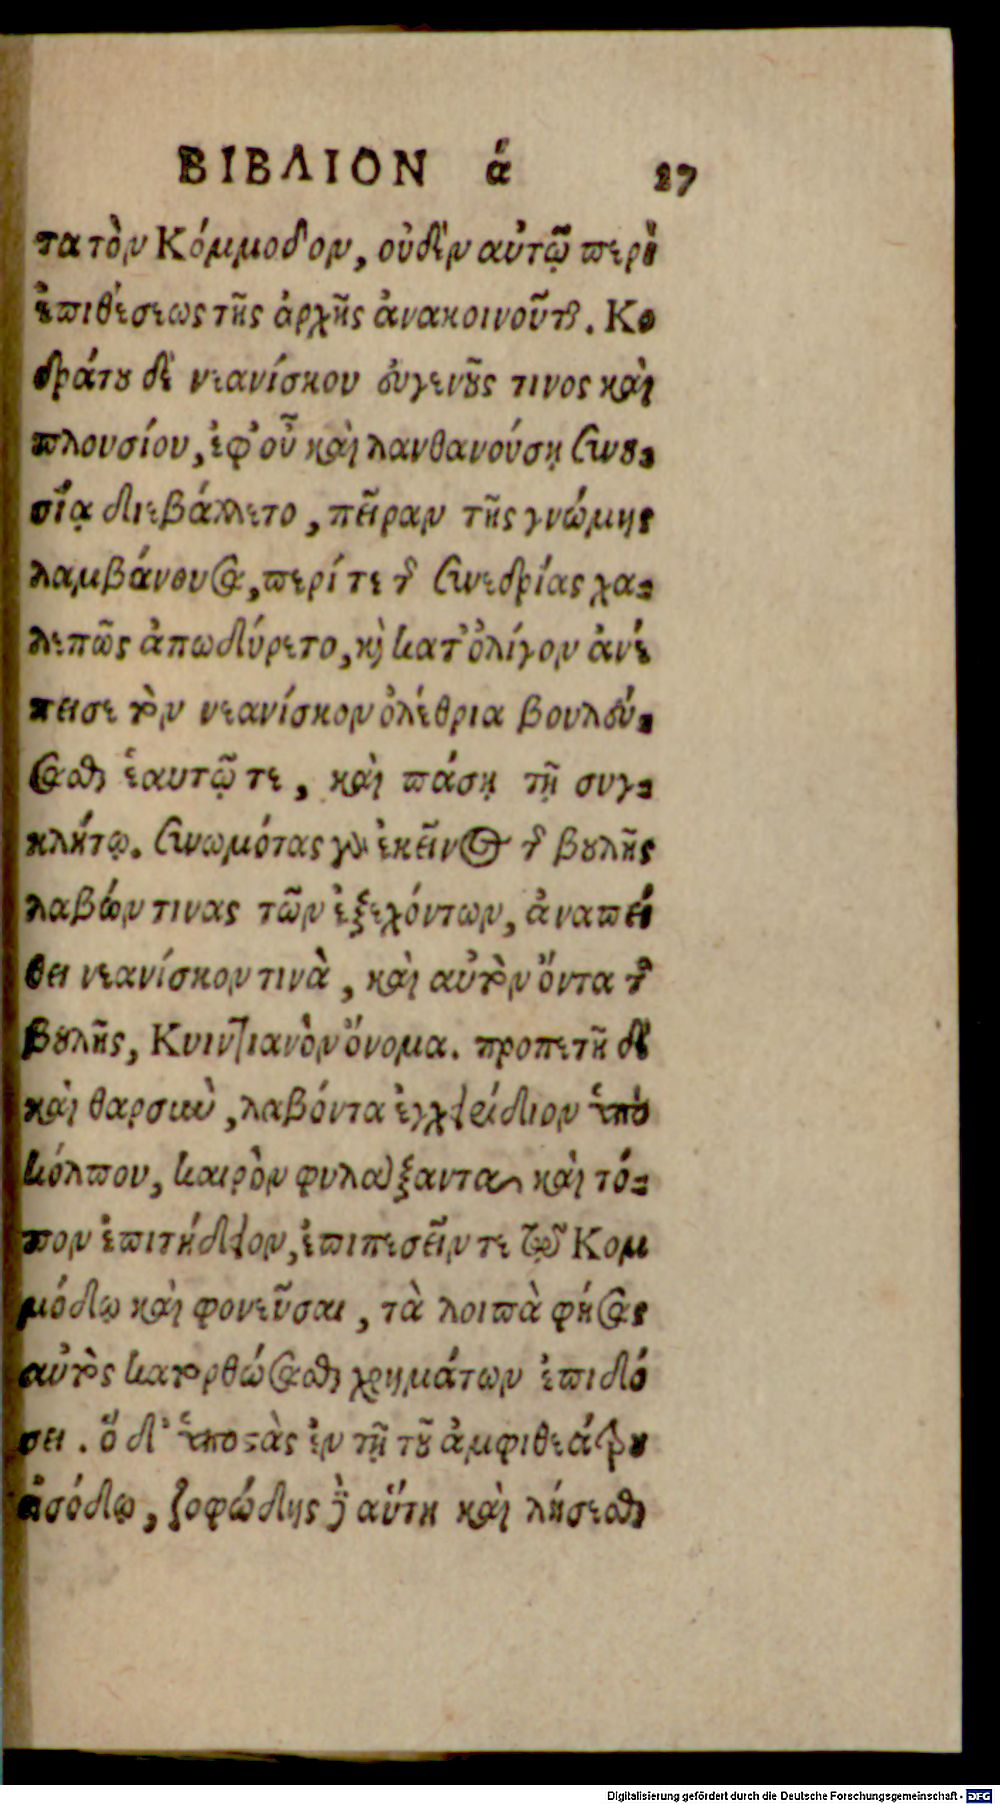 ΒΙΒΛΙΟΝ ά 27
τα τὸν Κόμμοδον, οὐδὲν αὐτῷ περὶ
ἐπιθέσεως τῆς ἀρχῆς ἀνακοινοῦται. Κο
δράτου δὲ νεανίσκου εὐγενοῦς τινος καὶ
πλουσίου, ἐφ' οὗ καὶ λανθανούσῃ συνου-
σίᾳ διεβάλλετο, πεῖραν τῆς γνώμης
λαμβάνουσα, περί τε τῆς συνεδρίας χα-
λεπῶς ἀπωδύρετο, καὶ κατ' ὀλίγον ἀνέ
πεισε τὸν νεανίσκον ὀλέθρια βουλεύ-
σασθαι ἑαυτῷ τε, καὶ πάσῃ τῇ συγ-
κλήτῳ. συνωμότας γὰρ ἐκεῖνος τῆς βουλῆς
λαβών τινας τῶν ἐξεχόντων, ἀναπεί
θει νεανίσκον τινὰ, καὶ αὐτὸν ὄντα τῆς
βουλῆς, Κυιντιανὸν ὄνομα. προπετῆ δὲ
καὶ θαρσαλέον, λαβόντα ἐγχειρίδιον ὑπὸ
κόλπου, καιρὸν φυλάξαντα καὶ τό-
πον ἐπιτήδειον, ἐπιπεσεῖν τε τῷ Κομ
μόδῳ καὶ φονεῦσαι, τὰ λοιπὰ φήσας
αὐτὸς κατορθώσασθαι χρημάτων ἐπιδό
σει. ὁ δ' ὑποστὰς ἐν τῇ τοῦ ἀμφιθεάτρου
εἰσόδῳ, ζοφώδης δὲ αὕτη καὶ λήσεσθαι
Digitalisierung gefördert durch die Deutsche Forschungsgemeinschaft - DFG